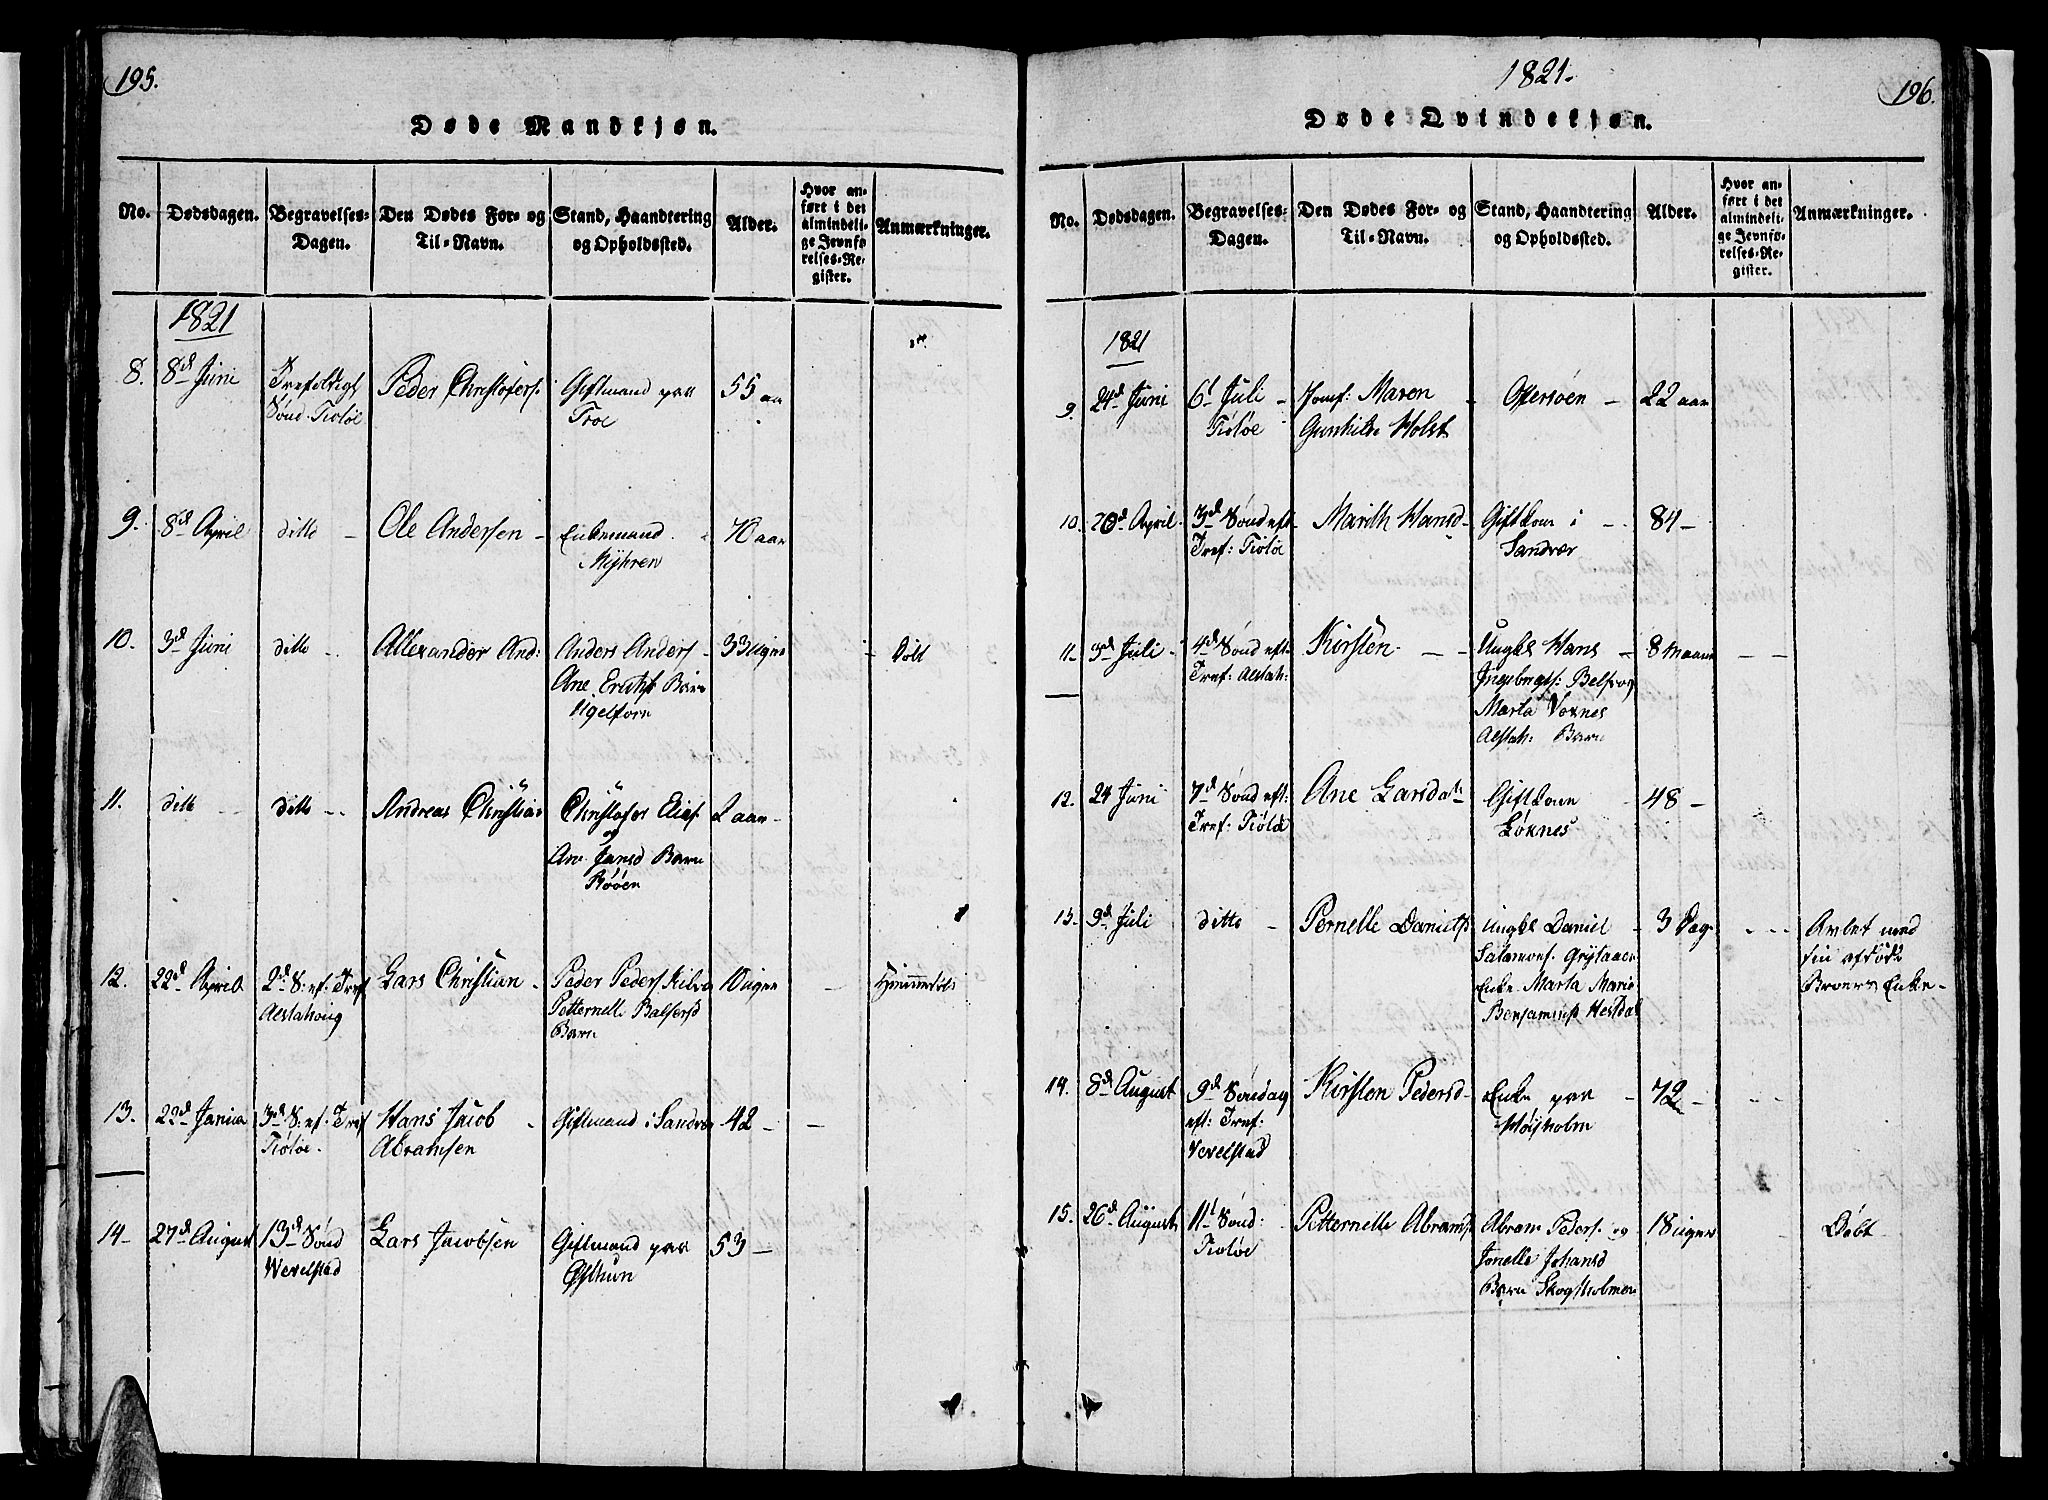 195.
Døde Mandkjøn.
No.
Dødsdagen.
Begravelses-
Dagen.
Den Dødes For- og
Til-Navn.
Stand, Haandtering
og Opholdssted.
Alder.
Hvor an-
ført i det
almindeli-
ge Jevnfø-
relses-Re-
gister.
Anmærkninger.
1821
8.
8d Juni
Trefoldigh
Sønd Tiøløe
Peder Christofers:
Giftmand paa
Troe
55 aar
9.
8d April
ditto
Ole Andersen
Enkemand
Myhren
70 aar
10.
3d Juni
ditto
Allexander And:
Anders Anders
Ane Barn
33 uger
Døbt
11.
ditto
ditto
Andreas Christian
Christofer Elias
og
Ane Jansd Barn
Røøen
2 aar
12.
22d April
2d S: ef: Tref
Alstahoug
Lars Christian
Peder Peders
Petternelle Balzersd
Barn
10 uger
Hjemmedøbt
13.
22d Janua
3d S: ef: Tref
Tiøløe.
Hans Jacob
Abramsen
Giftmand i Sandvær
42
14
27d August
13d Sønd
Wevelstad
Lars Jacobsen
Giftmand paa
53
1821.
196.
Døde Qvindekjøn.
No.
Dødsdagen.
Begravelses-
Dagen.
Den Dødes For- og
Til-Navn.
Stand, Haandtering
og Opholdssted.
Alder.
Hvor an-
ført i det
almindeli-
ge Jevnfø-
relses-Re-
gister.
Anmærkninger.
1821
9.
24d Juni
6t Juli
Tiøløe
Jomf: Maren
Gunhilde Holst
22 aar
10.
20d April
3d Sønd eft
Tref: Tiøløe
Marith Hansd
Giftkone i
Sandvær
84
11
3d Juli
4d Sønd eft
Tref: Alstah:
Kirsten
Ungkl Hans
Marta Voxnes
Alstah: Barn
8 Maane
12.
24 Juni
7d Sønd eft:
Tref: Tiøløe
Ane Larsdatr
Giftkone
Løknes
48
13.
9d Juli
ditto
Pernelle Daniels
Ungkl Daniel
Salamons: Grytaaen
Enke Marta Marie
Benjamins Hestdal
3 Dag
Avlet med
sin afdøde
Broers Enke
14.
8d August
9d Søndag
eft: Tref:
Vevelstad
Kirsten Pedersd
Enke paa
72
15.
26d August
11t Sønd:
Tiøløe
Petternelle Abrams
Abram Peders: og
Jonelle Johansd
Barn Skogsholmen
18 uger
Døbt